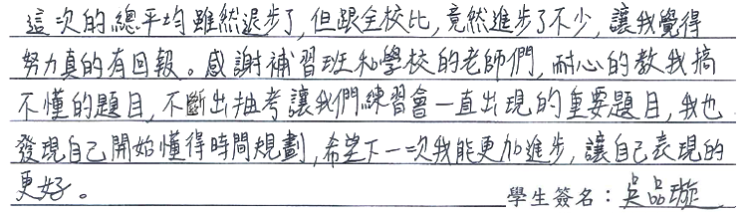 這次的總平均雖然退步了，但跟全校比，竟然進步了不少，讓我覺得
努力真的有回報。感謝補習班和學校的老師們，耐心的教我搞
不懂的題目，不斷出抽考讓我們練習會一直出現的重要題目，我也
發現自己開始懂得時間規劃，希望下一次我能更加進步，讓自己表現的
更好。
學生簽名：吳品璇